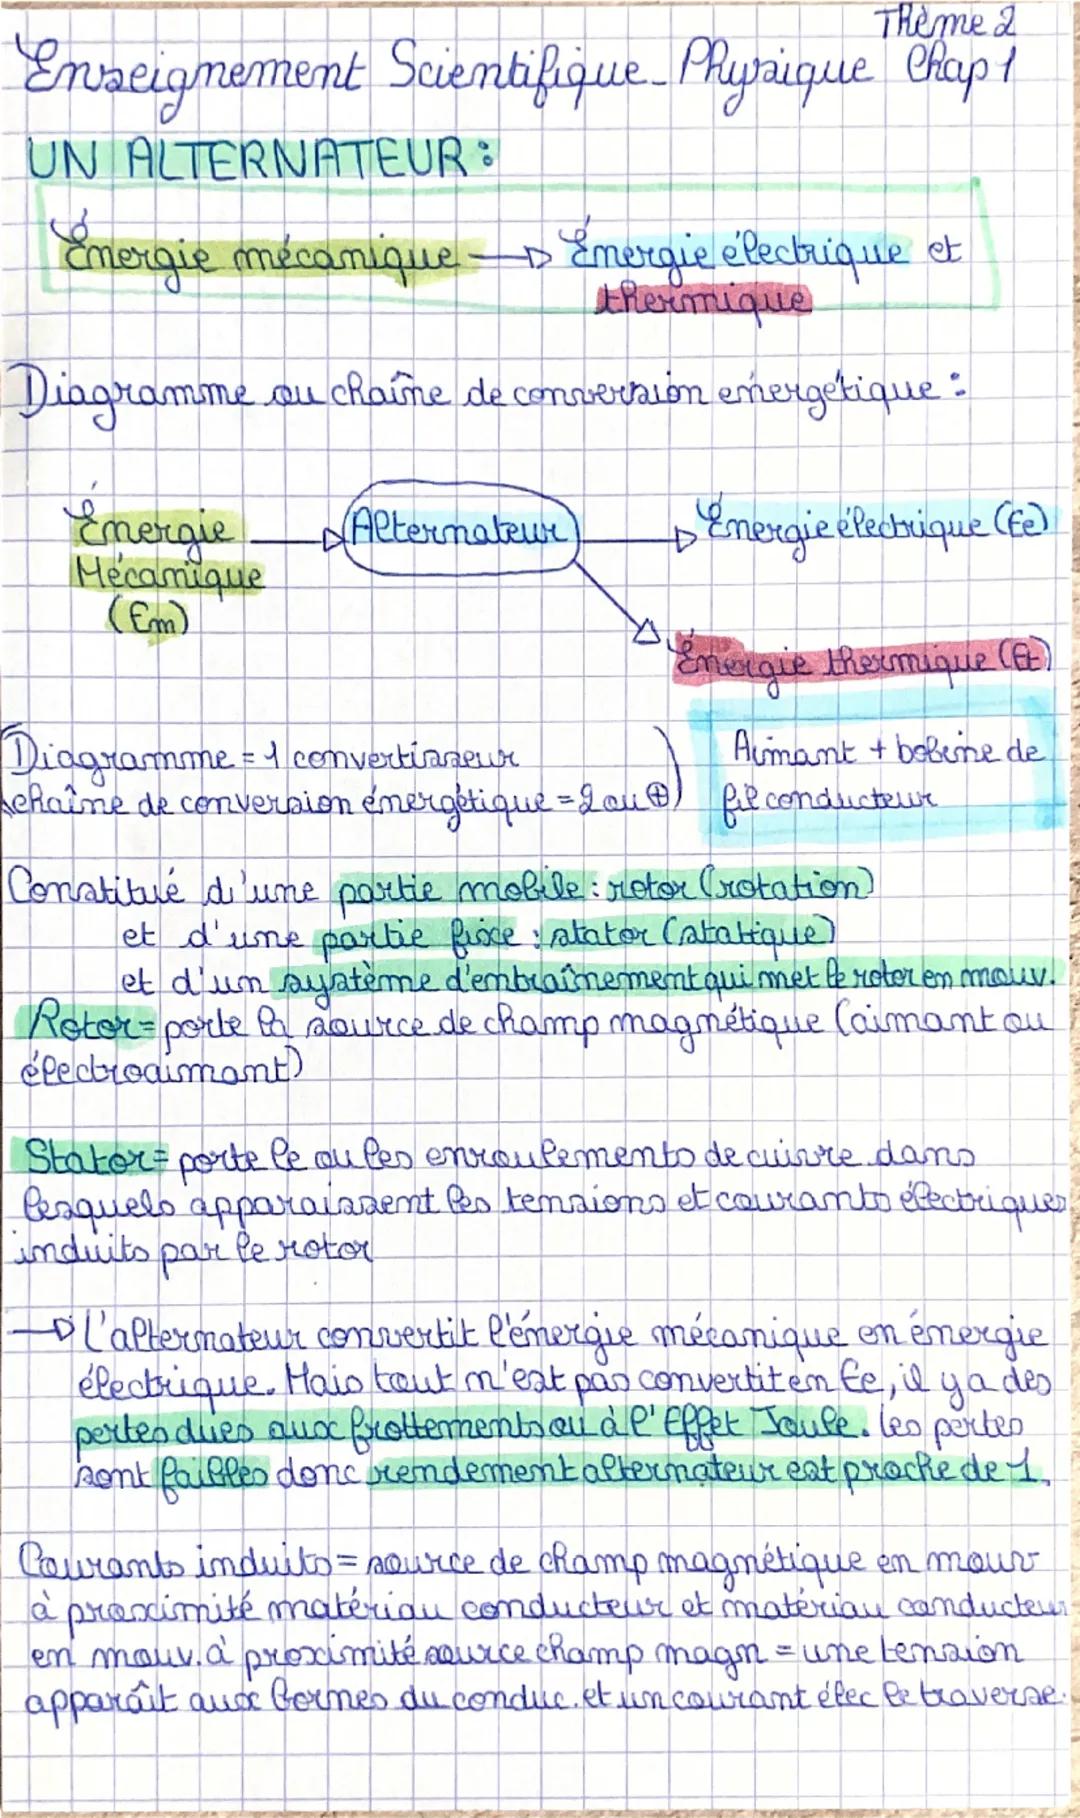 Thème 2
Enseignement Scientifique - Physique Chap 1
UN ALTERNATEUR :
Énergie mécanique → Énergie électrique et
thermique
Diagramme ou chaîne de conversion énergétique :
Énergie
Mécanique
(Em)
Alternateur
Énergie électrique (Ee)
Énergie thermique (Et)
Diagramme = 1 convertisseur
chaîne de conversion énergétique = 2 ou ⊕
Aimant + bobine de
fil conducteur
Constitué d'une partie mobile : rotor (rotation)
et d'une partie fixe : stator (statique)
et d'un système d'entraînement qui met le rotor en mouv.
Rotor = porte la source de champ magnétique (aimant ou
électroaimant)
Stator = porte le ou les enroulements de cuivre dans
lesquels apparaissent les tensions et courants électriques
induits par le rotor
→ L'alternateur convertit l'énergie mécanique en énergie
électrique. Mais tout n'est pas convertit en Ee, il y a des
pertes dues aux frottements ou à l'Effet Joule. les pertes
sont faibles donc rendement alternateur est proche de 1.
Courants induits = source de champ magnétique en mouv
à proximité matériau conducteur et matériau conducteur
en mouv. à proximité source champ magn = une tension
apparaît aux bornes du conduc. et un courant élec le traverse.